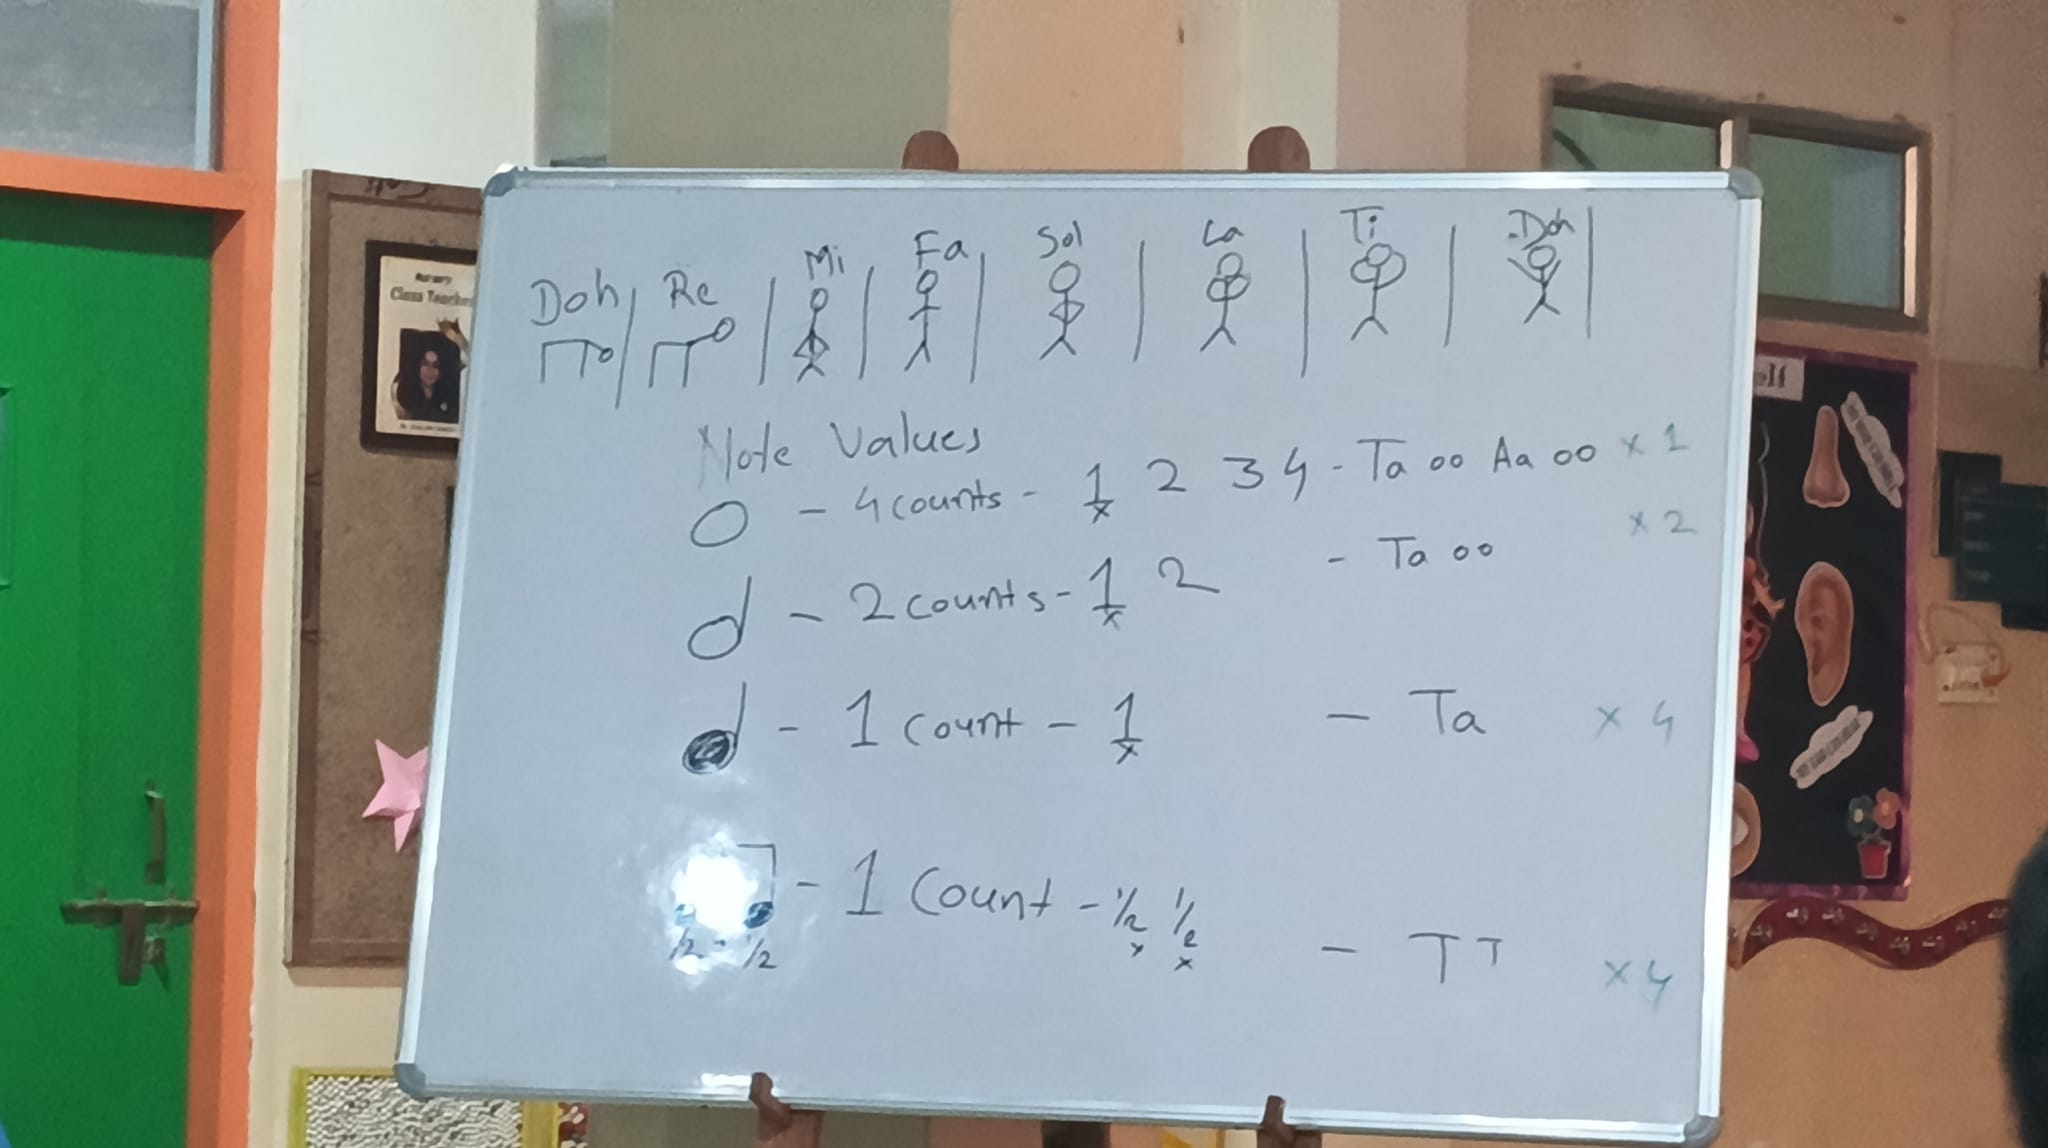 Doh Re Mi Fa Sol La Ti Doh
Note Values
- 4 counts - 1 2 3 4 - Ta oo Aa oo x 1
x
- 2 counts - 1 2 - Ta oo x 2
x
- 1 count - 1 - Ta x 4
x
- 1 Count - 1/2 1/2 - T T x 4
x x
1/2 - 1/2
Class Teacher